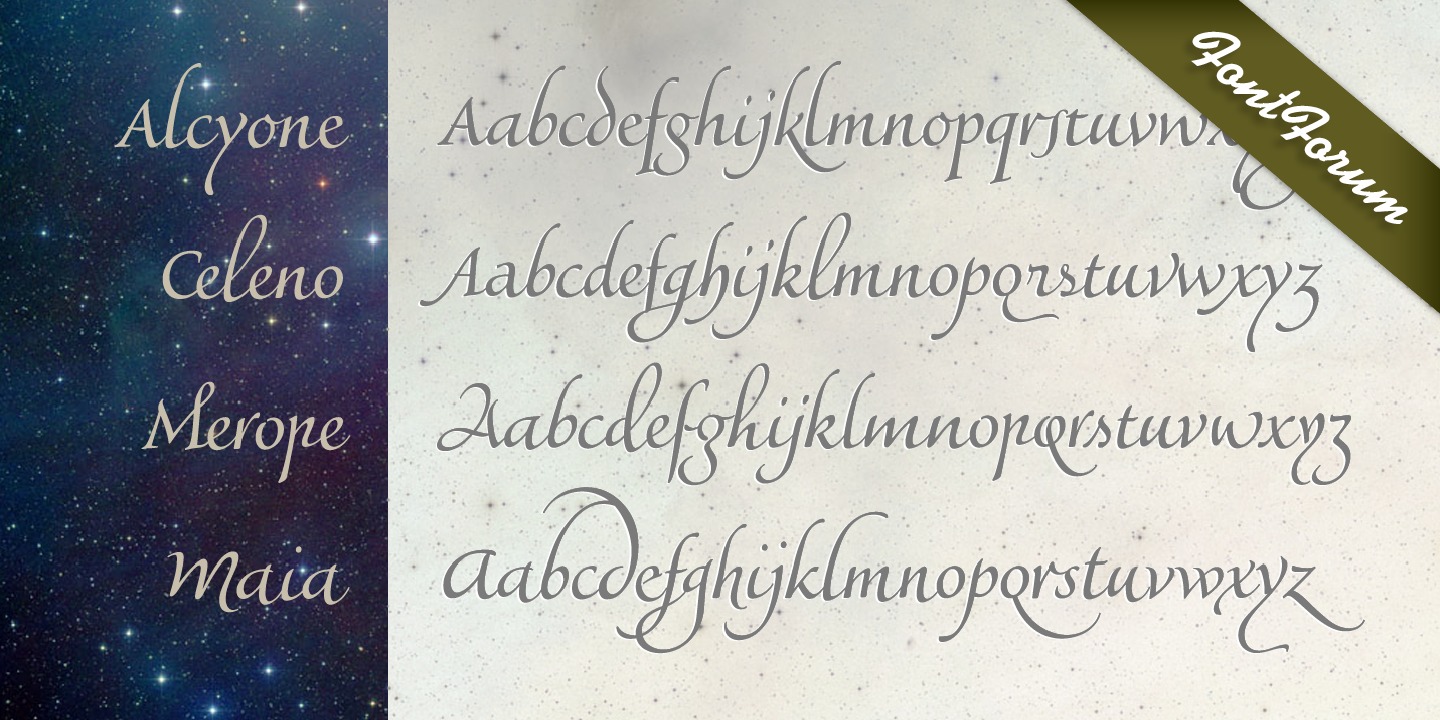 Alcyone
Aabcdefghijklmnopqrſtuvwx
FontForum
Celeno
Aabcdefghijklmnopqrstuvwxyz
Merope
Aabcdefghijklmnopqrstuvwxyz
Maia
Aabcdefghijklmnopqrstuvwxyz